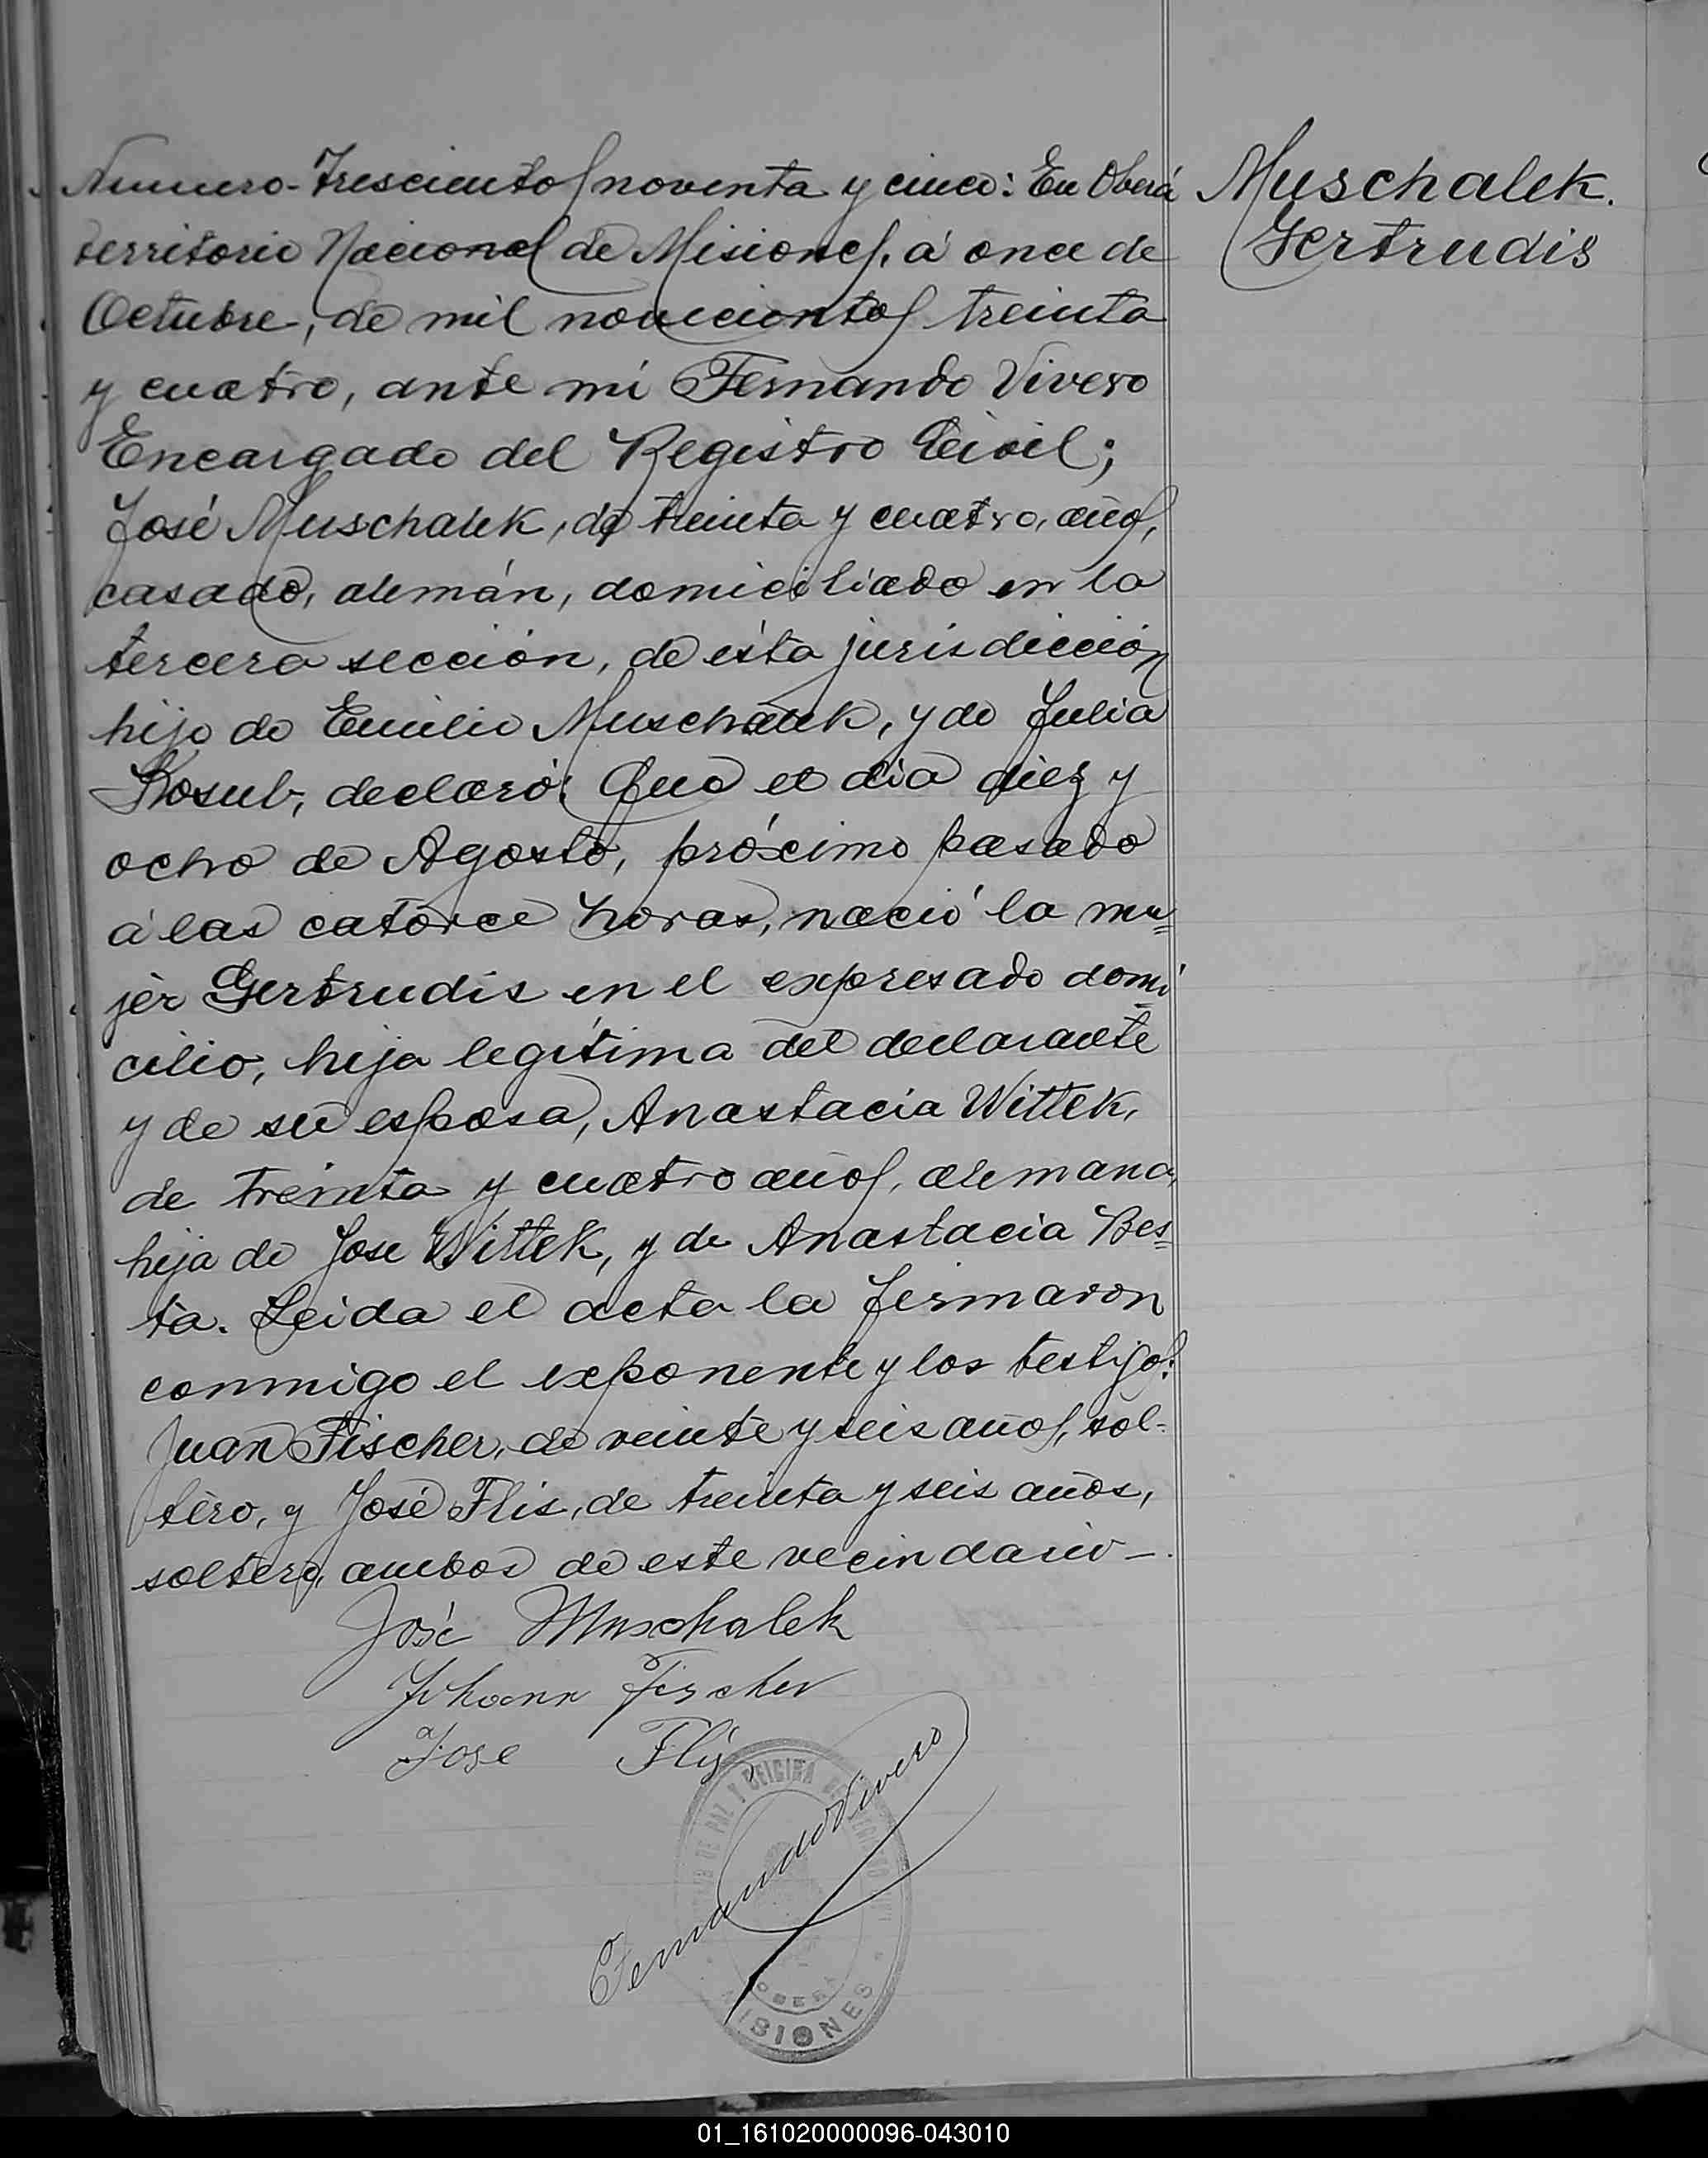 Numero-Trescientos noventa y cinco: En Oberá
territorio Nacional de Misiones, á once de
Octubre, de mil novecientos treinta
y cuatro, ante mí Fernando Vivero
Encargado del Registro Civil;
José Muschalek, de treinta y cuatro, años,
casado, alemán, domiciliado en la
tercera sección, de ésta jurisdicción
hijo de Emilio Muschalek, y de Julia
Kosub, declaró: Que el día diez y
ocho de Agosto, próximo pasado
á las catorce horas, nació la mu=
jer Gertrudis en el expresado domi
cilio, hija legítima del declarante
y de su esposa, Anastacia Wittek,
de treinta y cuatro años, alemana,
hija de Jose Wittek, y de Anastacia Bes=
ta. Leida el acta la firmaron
conmigo el exponente y los testigos:
Juan Fischer, de veinte y seis años, sol=
tero, y José Flis, de treinta y seis años,
soltero, ambos de este vecindario-.
José Muschalek
Johann Fischer
Jose Flis
Fernando Vivero
OBERA
MISIONES
Muschalek.
Gertrudis
01_161020000096-043010